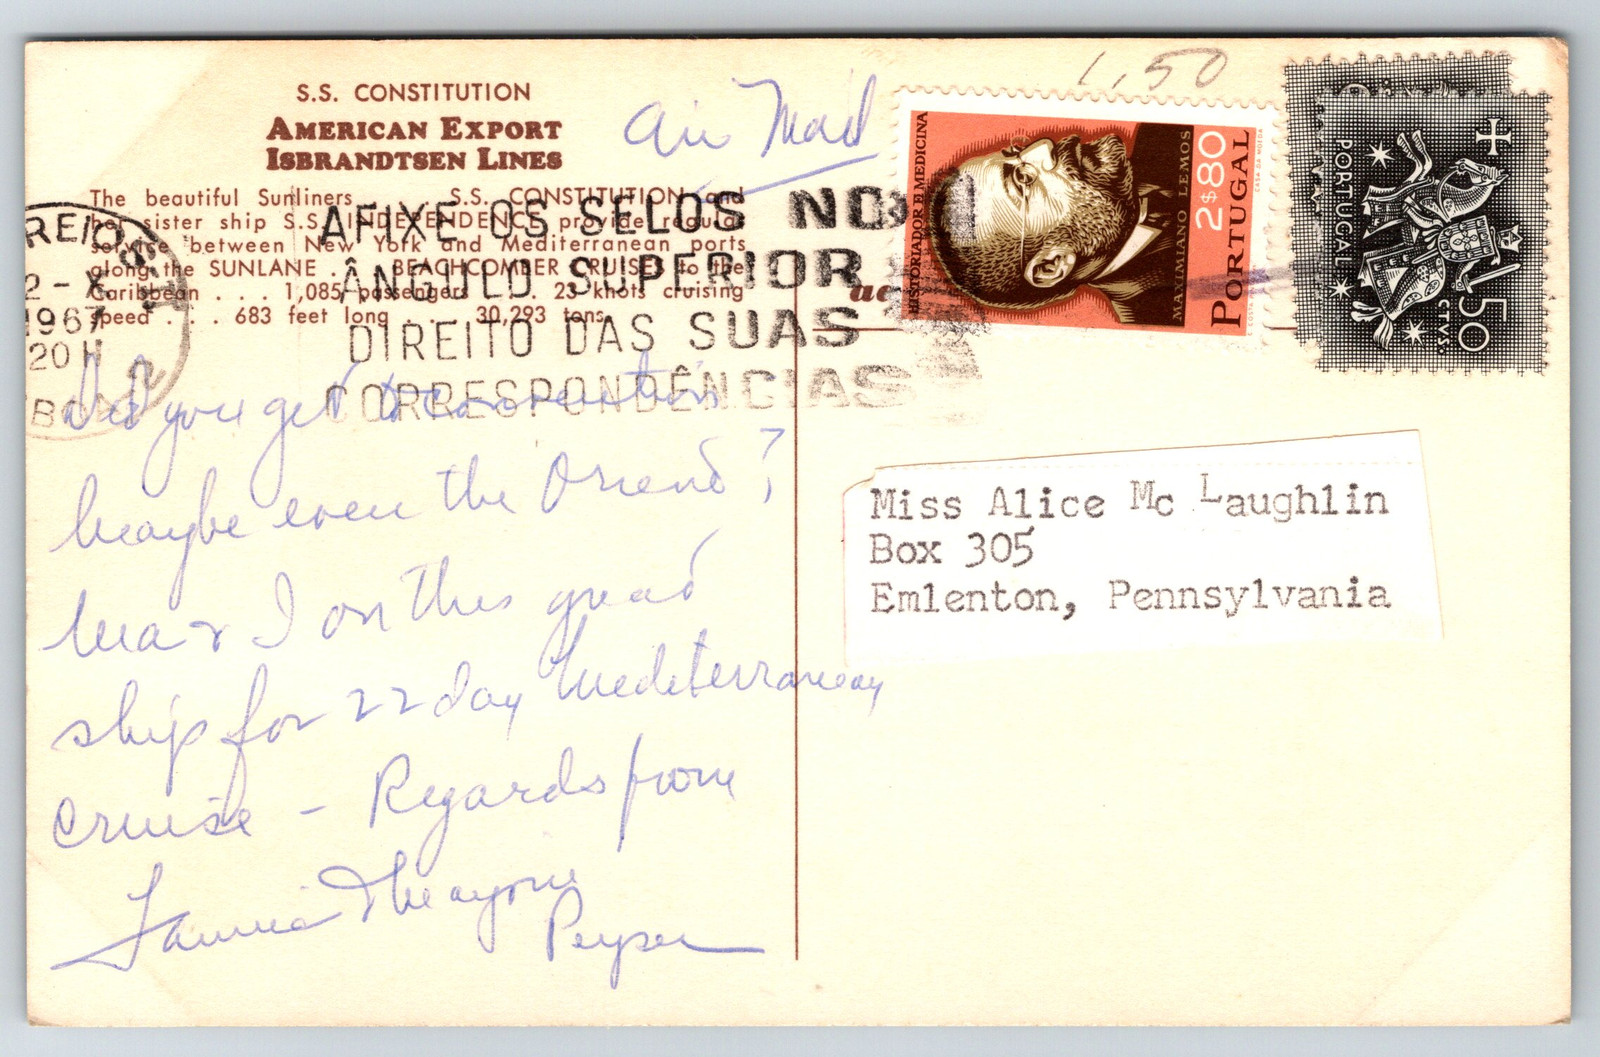 S.S. CONSTITUTION
AMERICAN EXPORT
ISBRANDTSEN LINES
The beautiful Sunliners . . . S.S. CONSTITUTION and
her sister ship S.S. INDEPENDENCE provide regular
service between New York and Mediterranean ports
along the SUNLANE . . . BEACHCOMBER CRUISES to the
Caribbean . . . 1,085 passengers . . . 23 knots cruising
speed . . . 683 feet long . . . 30,293 tons.
Air Mail
1,50
2-X
1967
20 H
AFIXE OS SELOS NO
ÂNGULO SUPERIOR
DIREITO DAS SUAS
CORRESPONDÊNCIAS
HISTORIADOR E MEDICINA
MAXIMIANO LEMOS
2$80
PORTUGAL
CASA DA MOEDA
PORTUGAL
CTVS. 50
Did you get to convention
Maybe even the Orient?
Ma & I on this great
ship for 22 day Mediterranean
Cruise – Regards from
Fannie & Mayme
Peyser
Miss Alice Mc Laughlin
Box 305
Emlenton, Pennsylvania